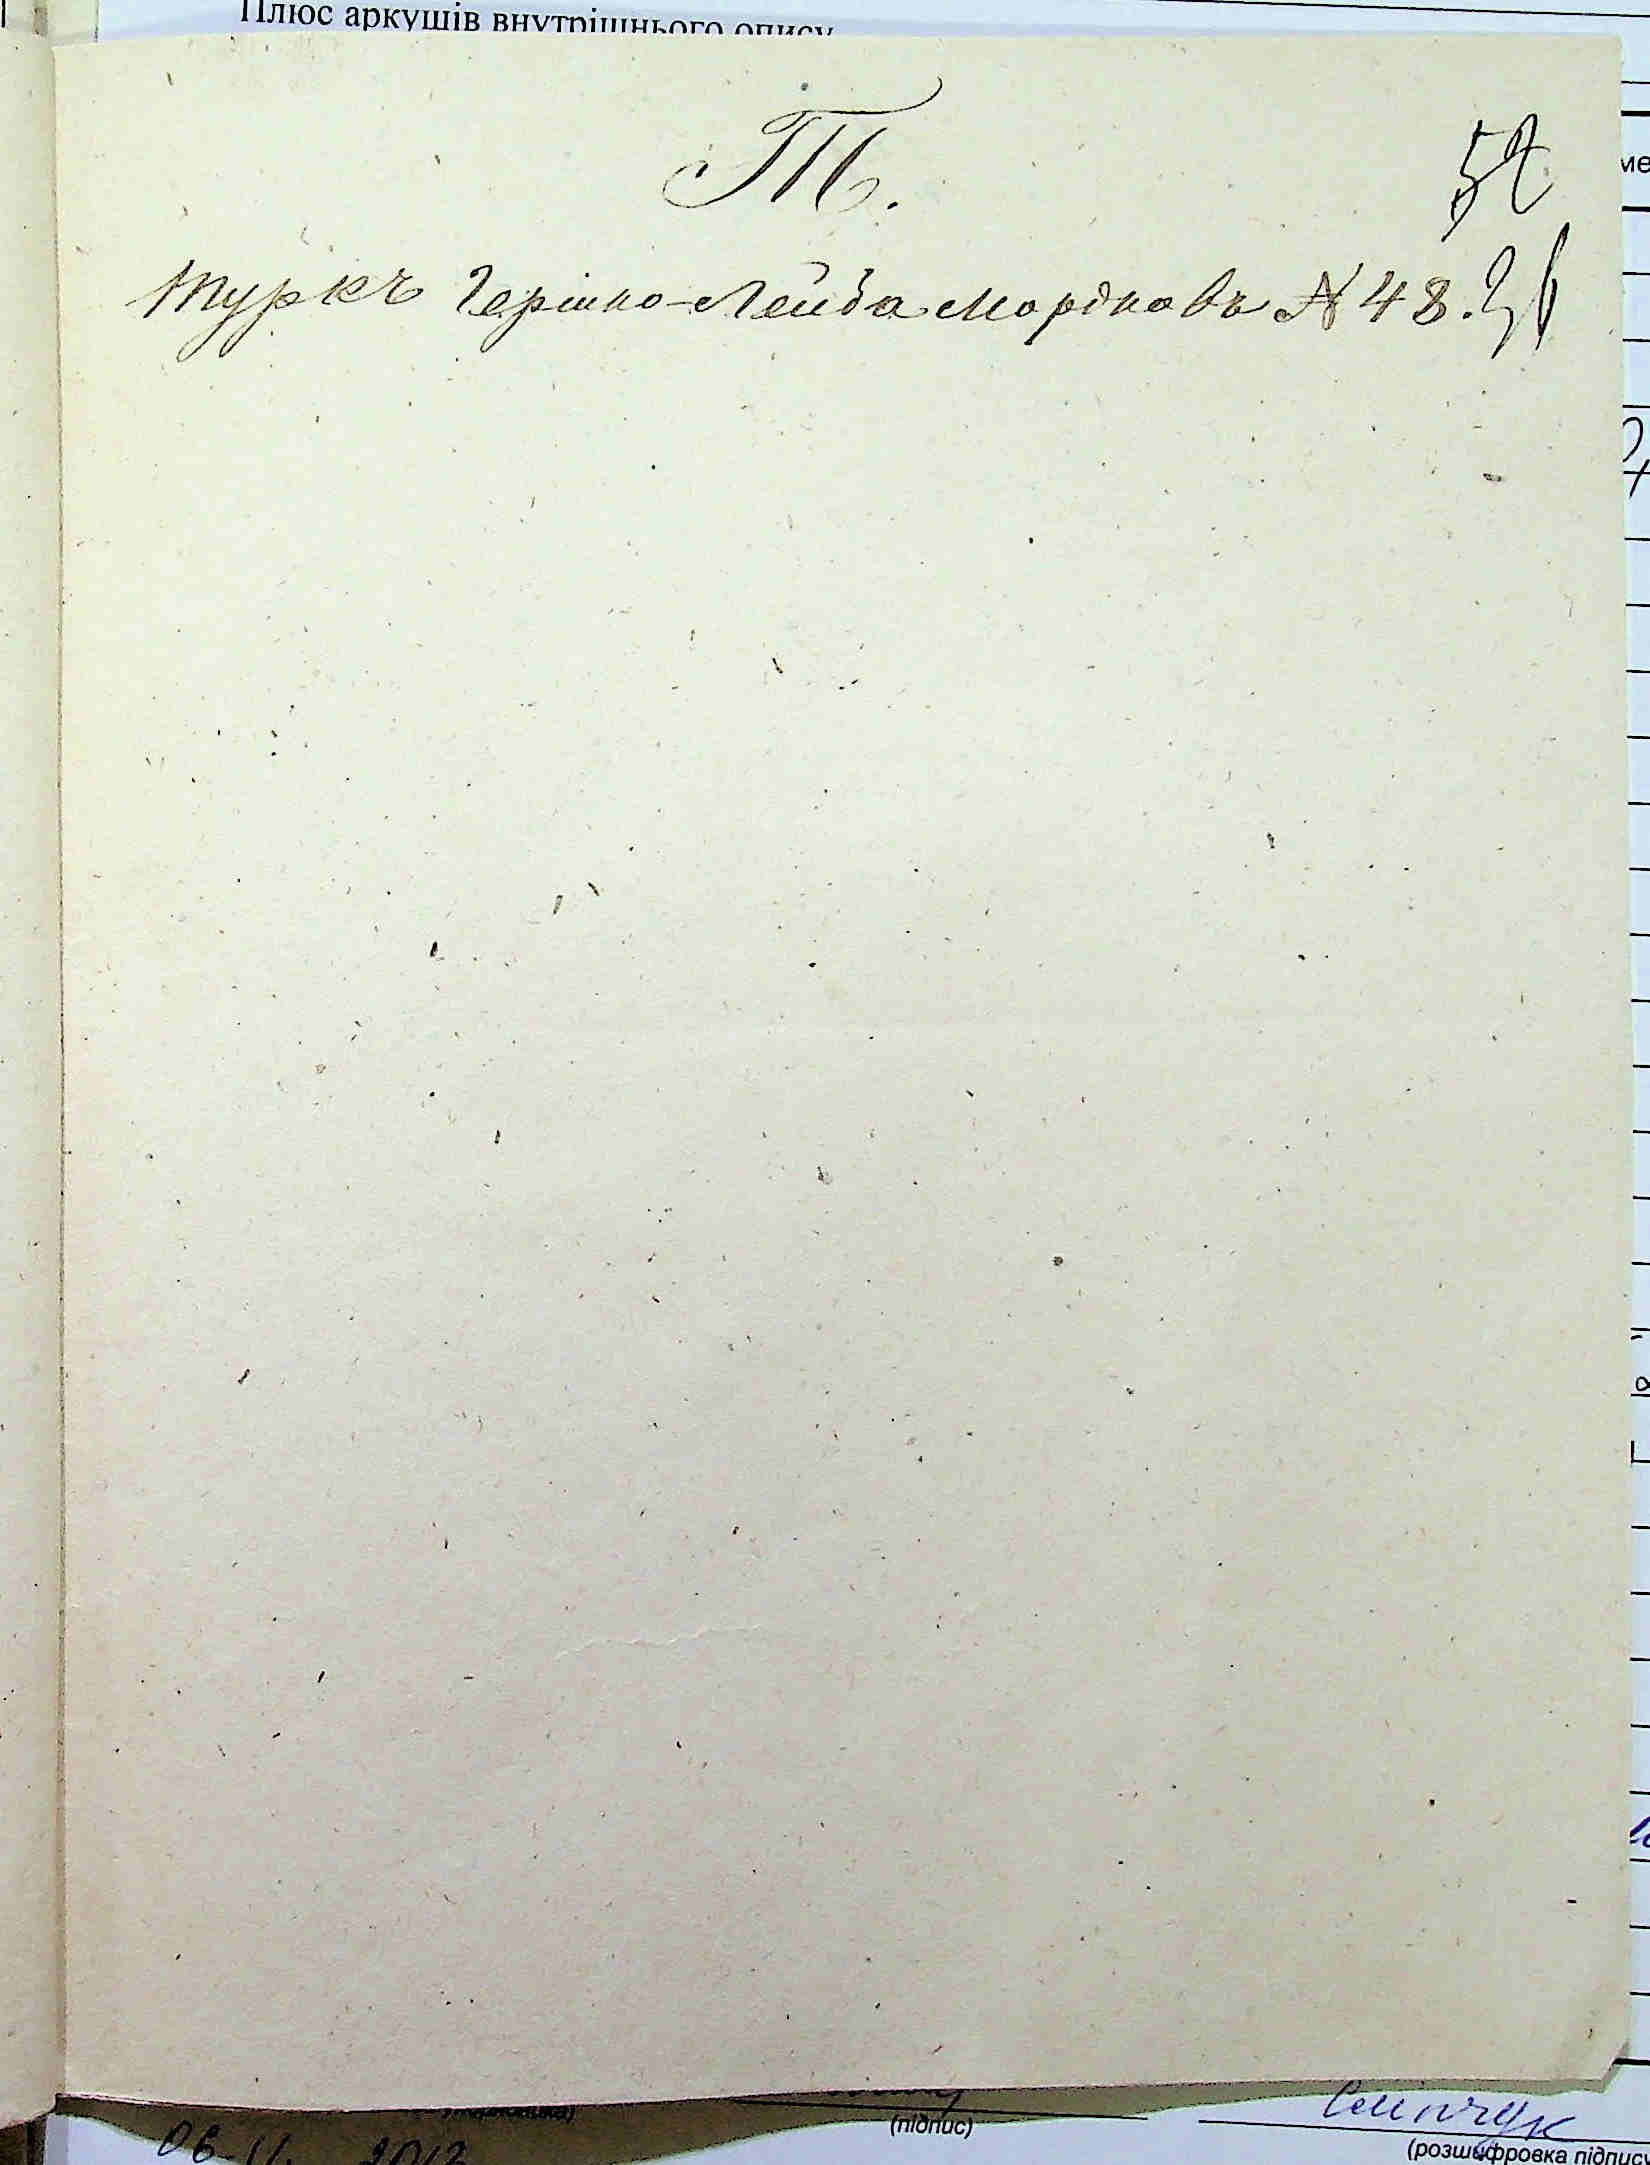 Плюс аркушів внутрішнього опису
Т.
57
Туркъ Гершко-Лейба Мордковъ № 48.
36
(підпис)
Семчук
(розшифровка підпису
06 11. 2012